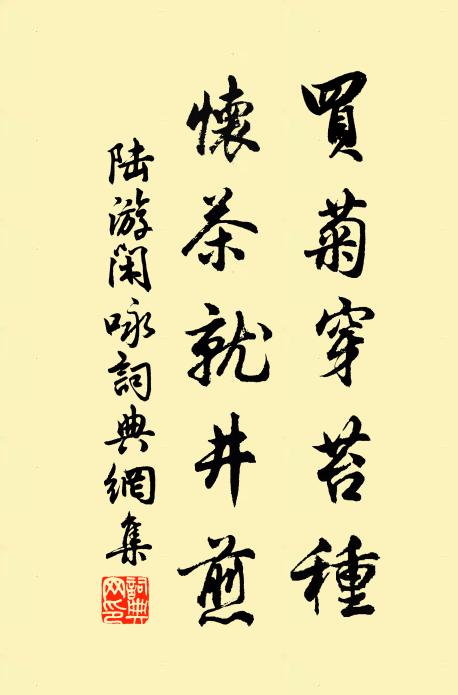 買菊穿苔種
懷茶就井煎
陸游閑咏詞典網集
詞典
网印